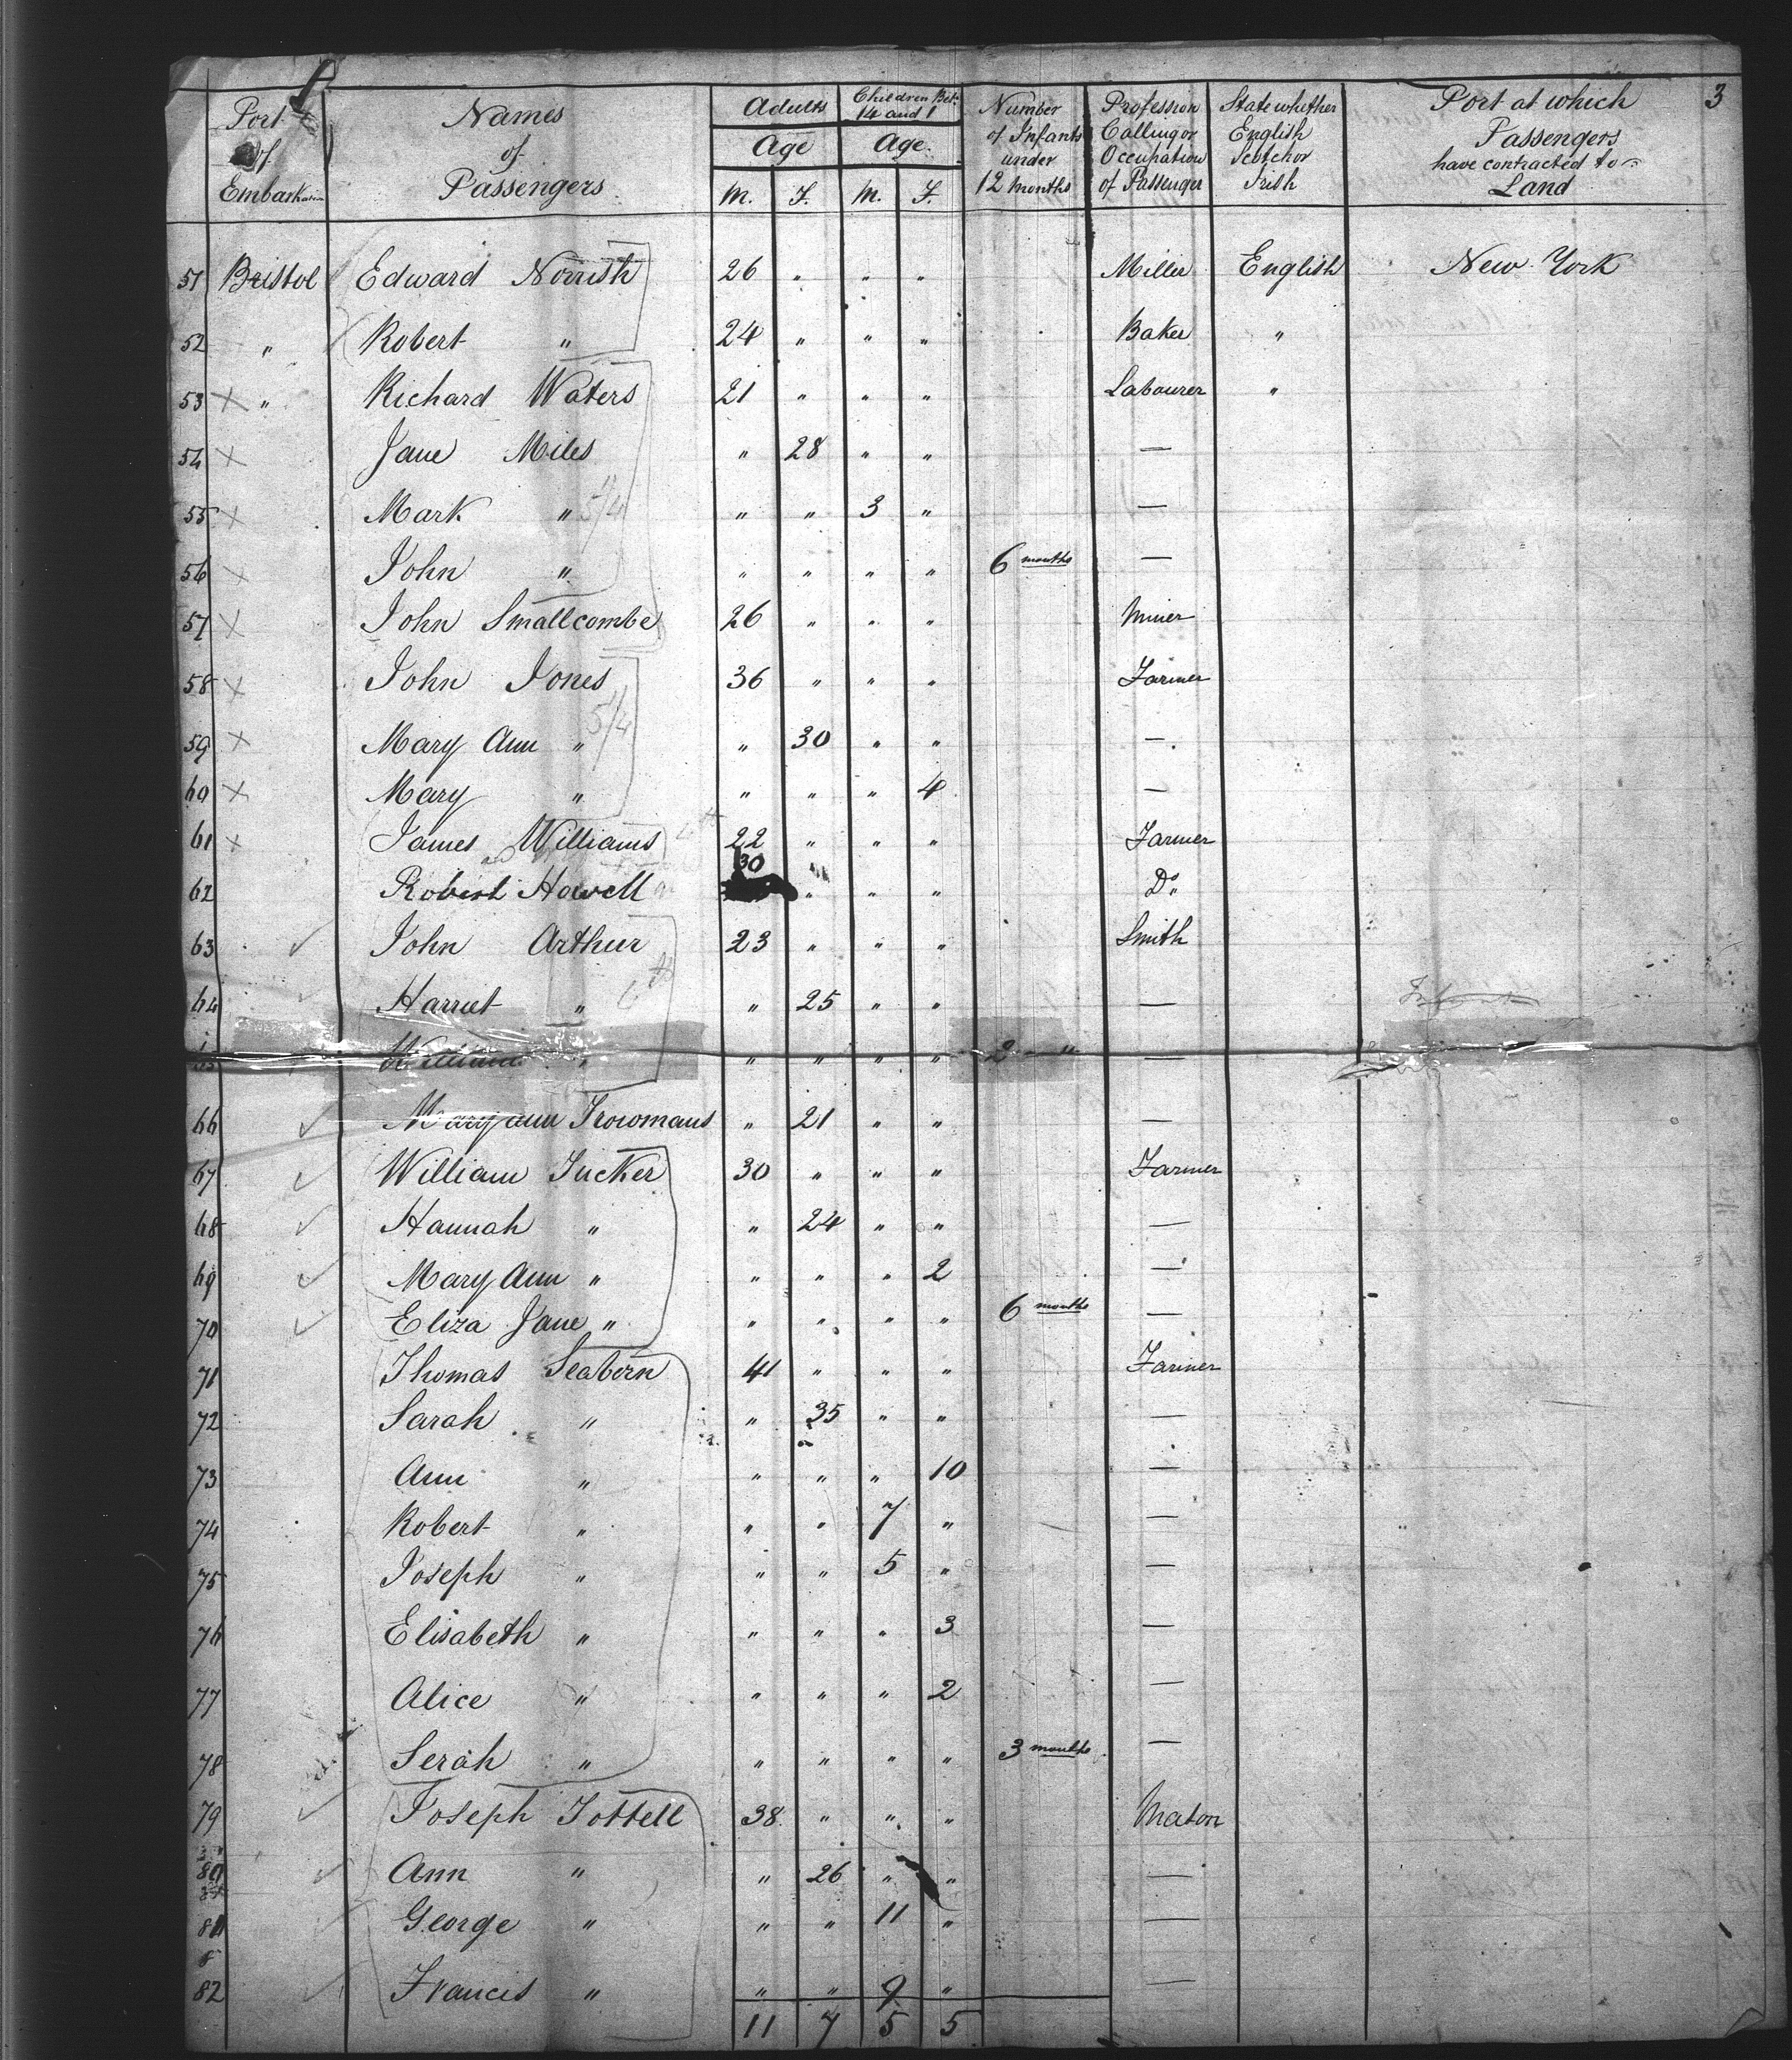 3
Port of Embarkation | Names of Passengers | Adults Age M. F. | Children Bet. 14 and 1 Age. M. F. | Number of Infants under 12 Months | Profession Calling or Occupation of Passenger | State whether English Scotch or Irish | Port at which Passengers have contracted to Land
51 Bristol Edward Norrish 26 " " " Miller English New York
52 " Robert " 24 " " " Baker "
53 x " Richard Waters 21 " " " Labourer "
54 x Jane Miles " 28 " " —
55 x Mark " 5/4 " " 3 " —
56 x John " " " " " 6 months —
57 x John Smallcombe 26 " " " Miner
58 x John Jones 36 " " " Farmer
59 x Mary Ann " 5/4 " 30 " " —
60 x Mary " " " " 4 —
61 x James Williams 22 " " " Farmer
62 Robert Howell 30 " " " Do
63 ✓ John Arthur 23 " " " Smith
64 ✓ Harriet " 6th " 25 " " —
William " " " " " 2 " —
66 ✓ Mary ann Trowmans " 21 " " —
67 ✓ William Tucker 30 " " " Farmer
68 ✓ Hannah " " 24 " " —
69 ✓ Mary Ann " " " " 2 —
70 ✓ Eliza Jane " " " " " 6 months —
71 Thomas Seabern 41 " " " Farmer
72 Sarah " " 35 " " —
73 Ann " " " " 10 —
74 Robert " " " 7 " —
75 Joseph " " " 5 " —
76 Elisabeth " " " " 3 —
77 Alice " " " " 2 —
78 Serah " " " " " 3 months —
79 ✓ Joseph Tottell 38 " " " Mason
80 ✓ Ann " " 26 " " —
81 ✓ George " " " 11 " —
82 ✓ Francis " " " 9 " —
11 7 5 5